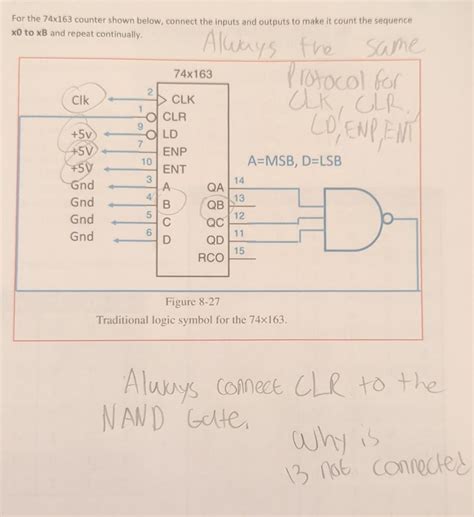 For the 74x163 counter shown below, connect the inputs and outputs to make it count the sequence
x0 to xB and repeat continually.
Always the same
Protocol for
CLK, CLR,
LD, ENP, ENT
74x163
Clk 2 CLK
1 CLR
+5v 9 LD
+5V 7 ENP
+5V 10 ENT
A=MSB, D=LSB
Gnd 3 A QA 14
Gnd 4 B QB 13
Gnd 5 C QC 12
Gnd 6 D QD 11
RCO 15
Figure 8-27
Traditional logic symbol for the 74x163.
Always connect CLR to the
NAND Gate.
Why is
13 not connected